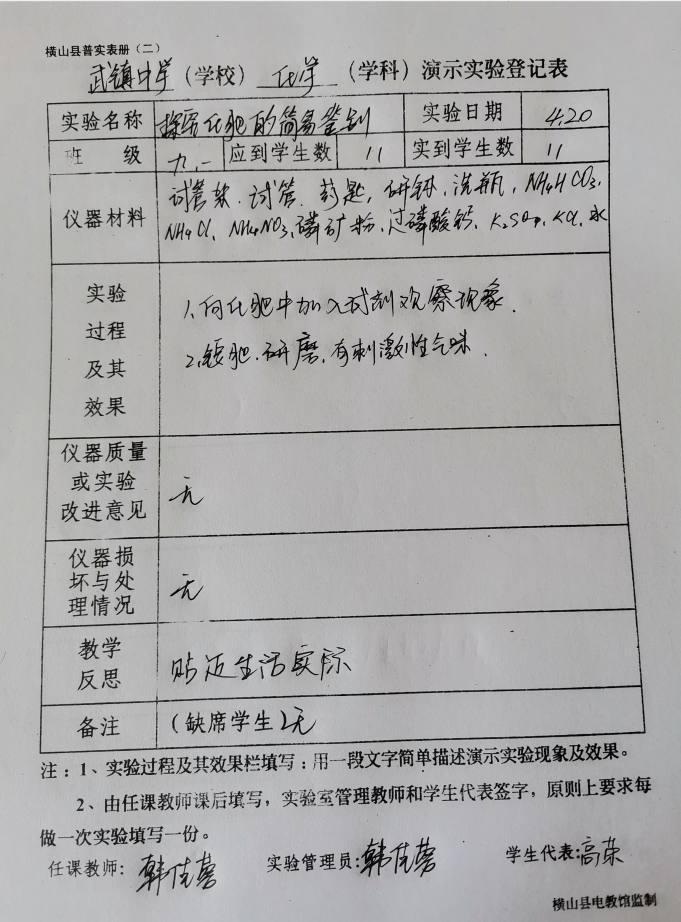 横山县普实表册（二）
武镇中学（学校） 化学 （学科）演示实验登记表
实验名称 探究化肥的简易鉴别 实验日期 4.20
班 级 九.一 应到学生数 11 实到学生数 11
仪器材料 试管架.试管.药匙,研钵,洗瓶,NH4HCO3,
NH4Cl,NH4NO3,磷矿粉,过磷酸钙,K2SO4,KCl,水
实验
过程
及其
效果
1.向化肥中加入试剂观察现象.
2.铵肥.研磨,有刺激性气味.
仪器质量
或实验
改进意见
无
仪器损
坏与处
理情况
无
教学
反思
贴近生活实际
备注 （缺席学生）无
注：1、实验过程及其效果栏填写：用一段文字简单描述演示实验现象及效果。
2、由任课教师课后填写，实验室管理教师和学生代表签字，原则上要求每
做一次实验填写一份。
任课教师: 韩佳蓉 实验管理员: 韩佳蓉 学生代表: 高荣
横山县电教馆监制